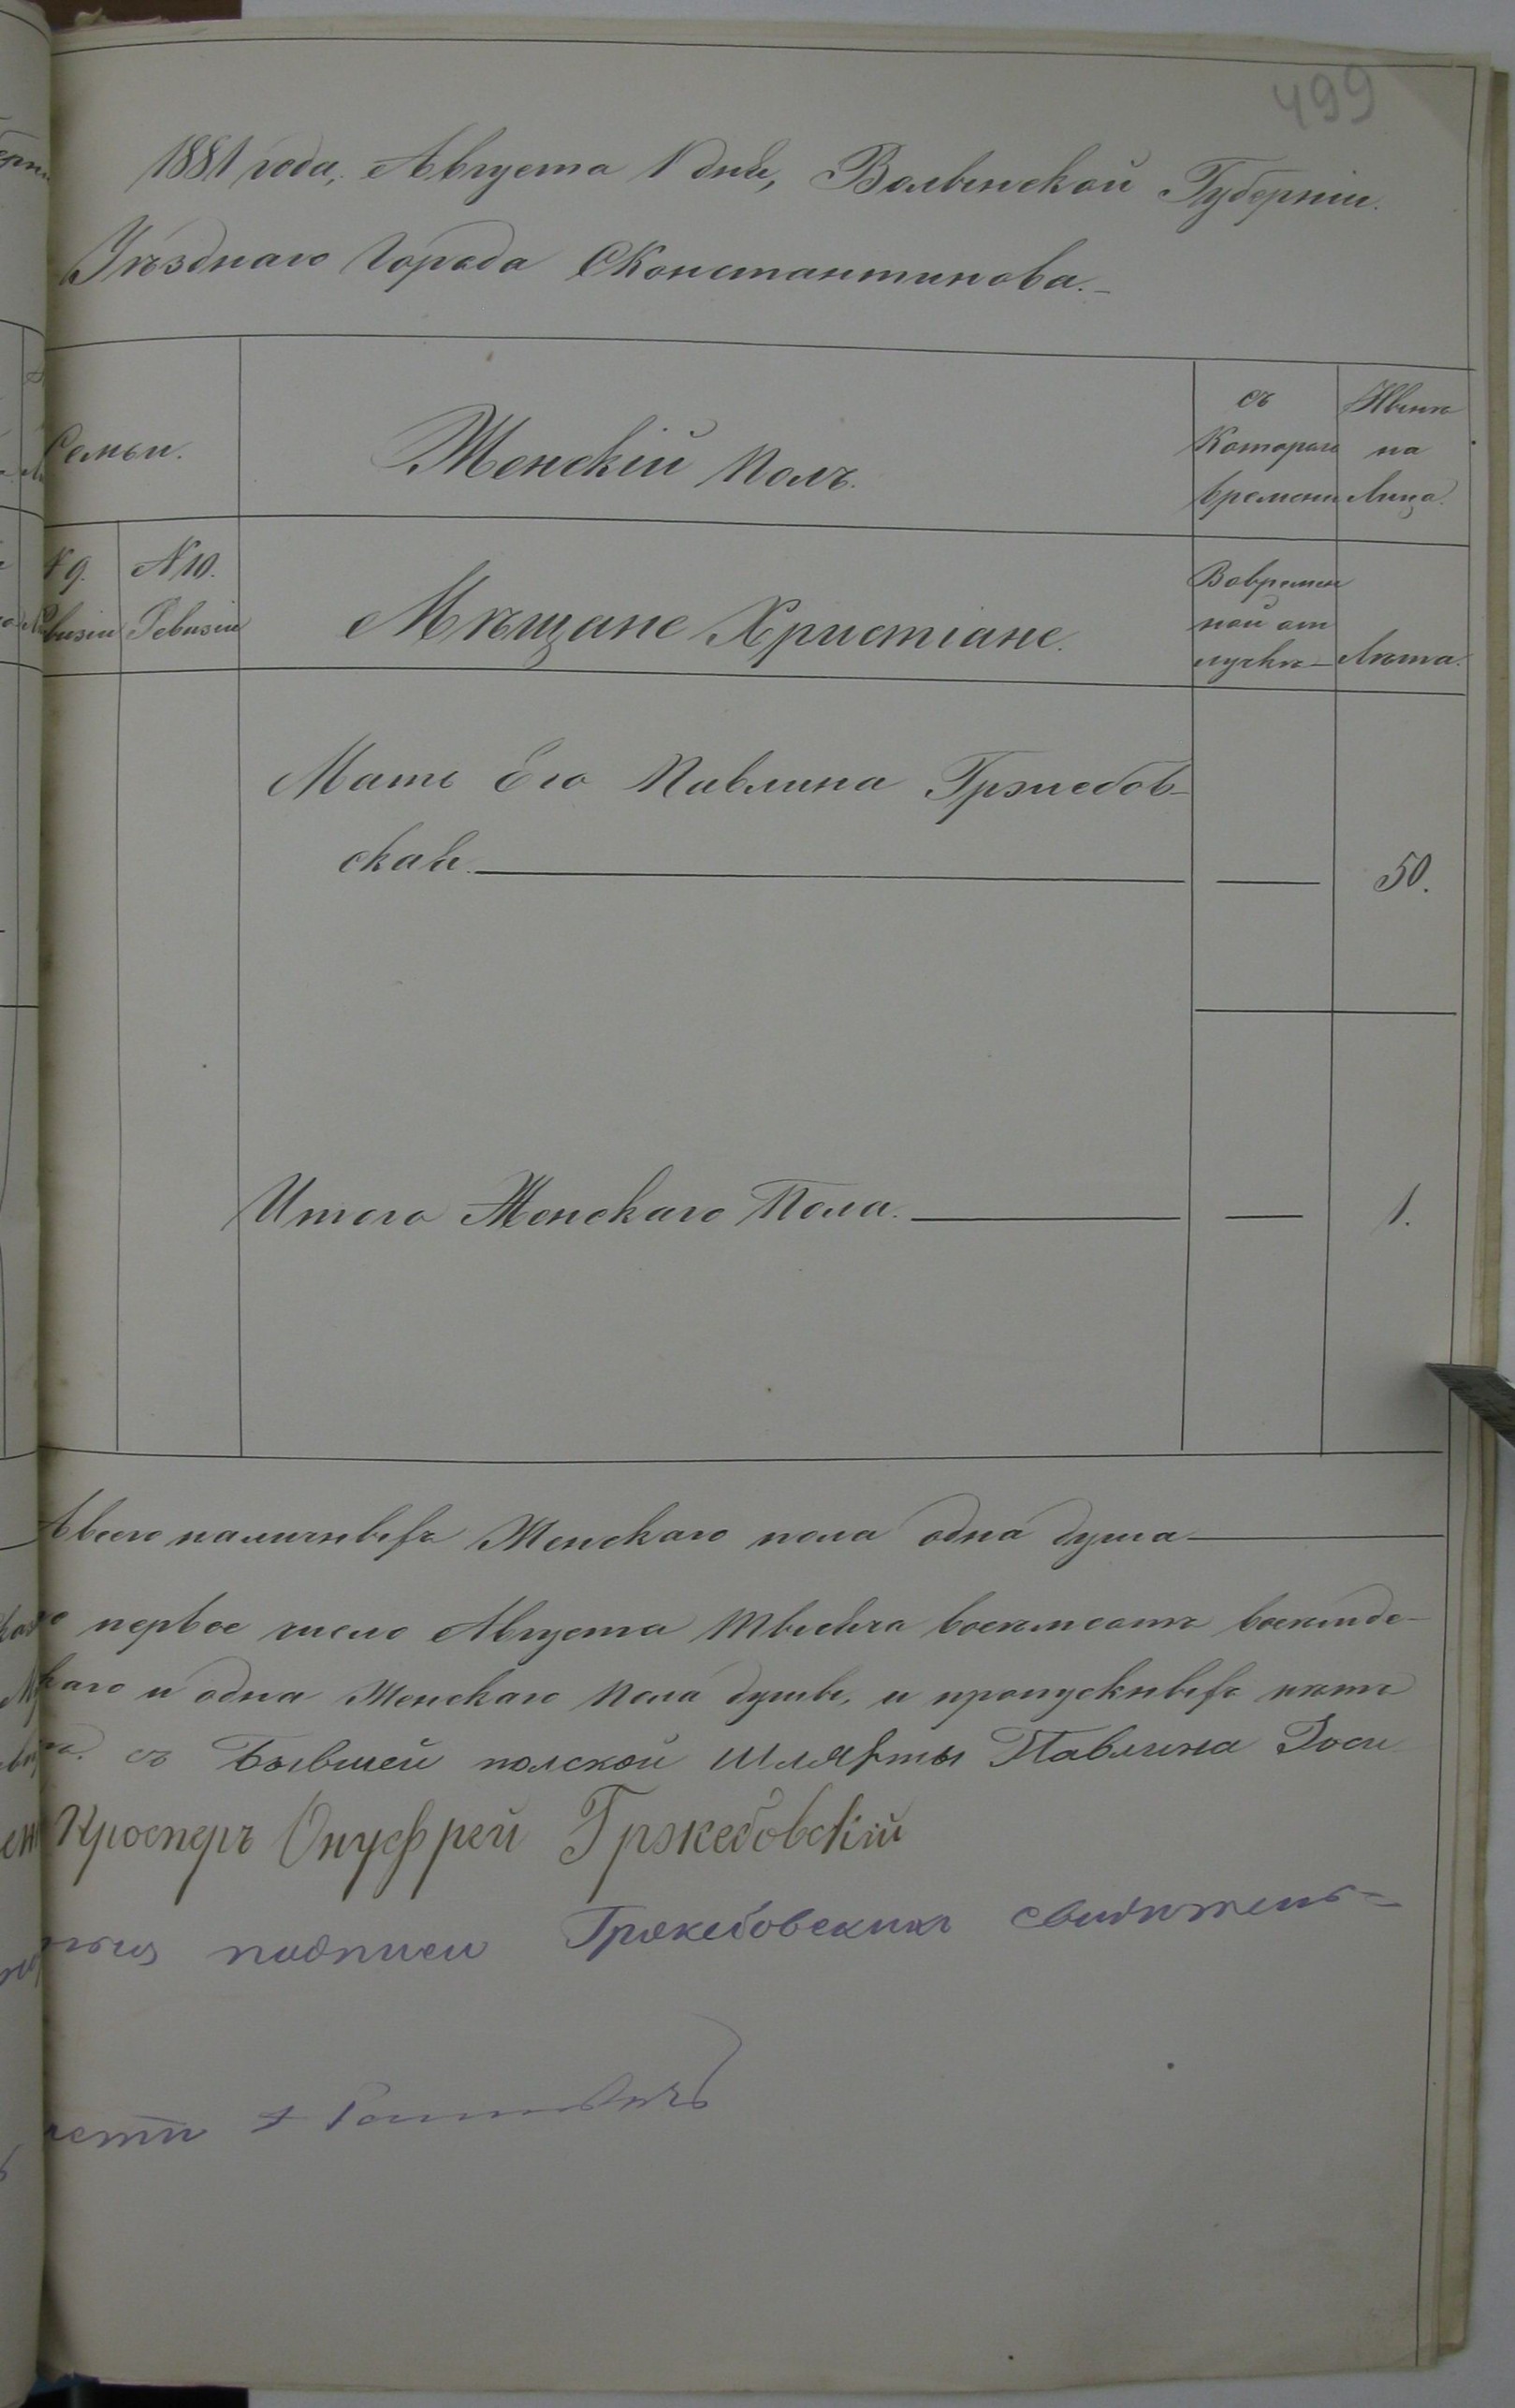 499
1881 года, Августа 1 дня, Волынской Губерніи.
Уѣзднаго Города СКонстантинова.
Семьи.
Женскій Полъ.
съ
Котораго
времени
Нынѣ
на
Лицо.
№ 9.
Ревизіи
№ 10.
Ревизіи
Мѣщане Христіане.
Вовремен
ной от
лучкѣ
Лѣта.
Мать Его Павлина Гржебов-
ская.
50.
Итого Женскаго Пола.
1.
Авсего наличныхъ Женскаго пола одна душа
первое число Августа тысяча восемьсотъ восемьде-
и одна Женскаго Пола души, и пропускныхъ нѣтъ
съ Бывшей полской Шляхты Павлина
Просперъ Онуфрей Гржебовскій
подписи Гржебовскихъ свидѣтель=